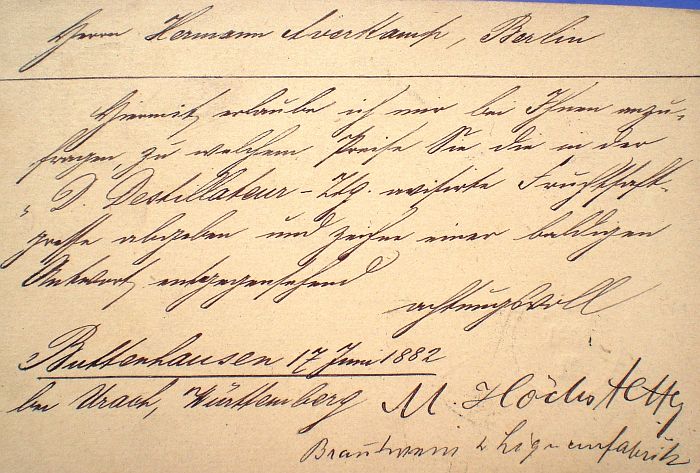 Herrn Hermann Averkamp, Berlin
Hiermit erlaube ich mir bei Ihnen anzu-
fragen zu welchem Preise Sie die in der
„D. Destillateur-Ztg. avisirte Fruchtsaft-
presse abgeben und zeichne einer baldigen
Antwort entgegensehend
achtungsvoll
Buttenhausen 17 Juni 1882
bei Urach, Württemberg
M. Höchstetter
Branntwein & Liqueurfabrik